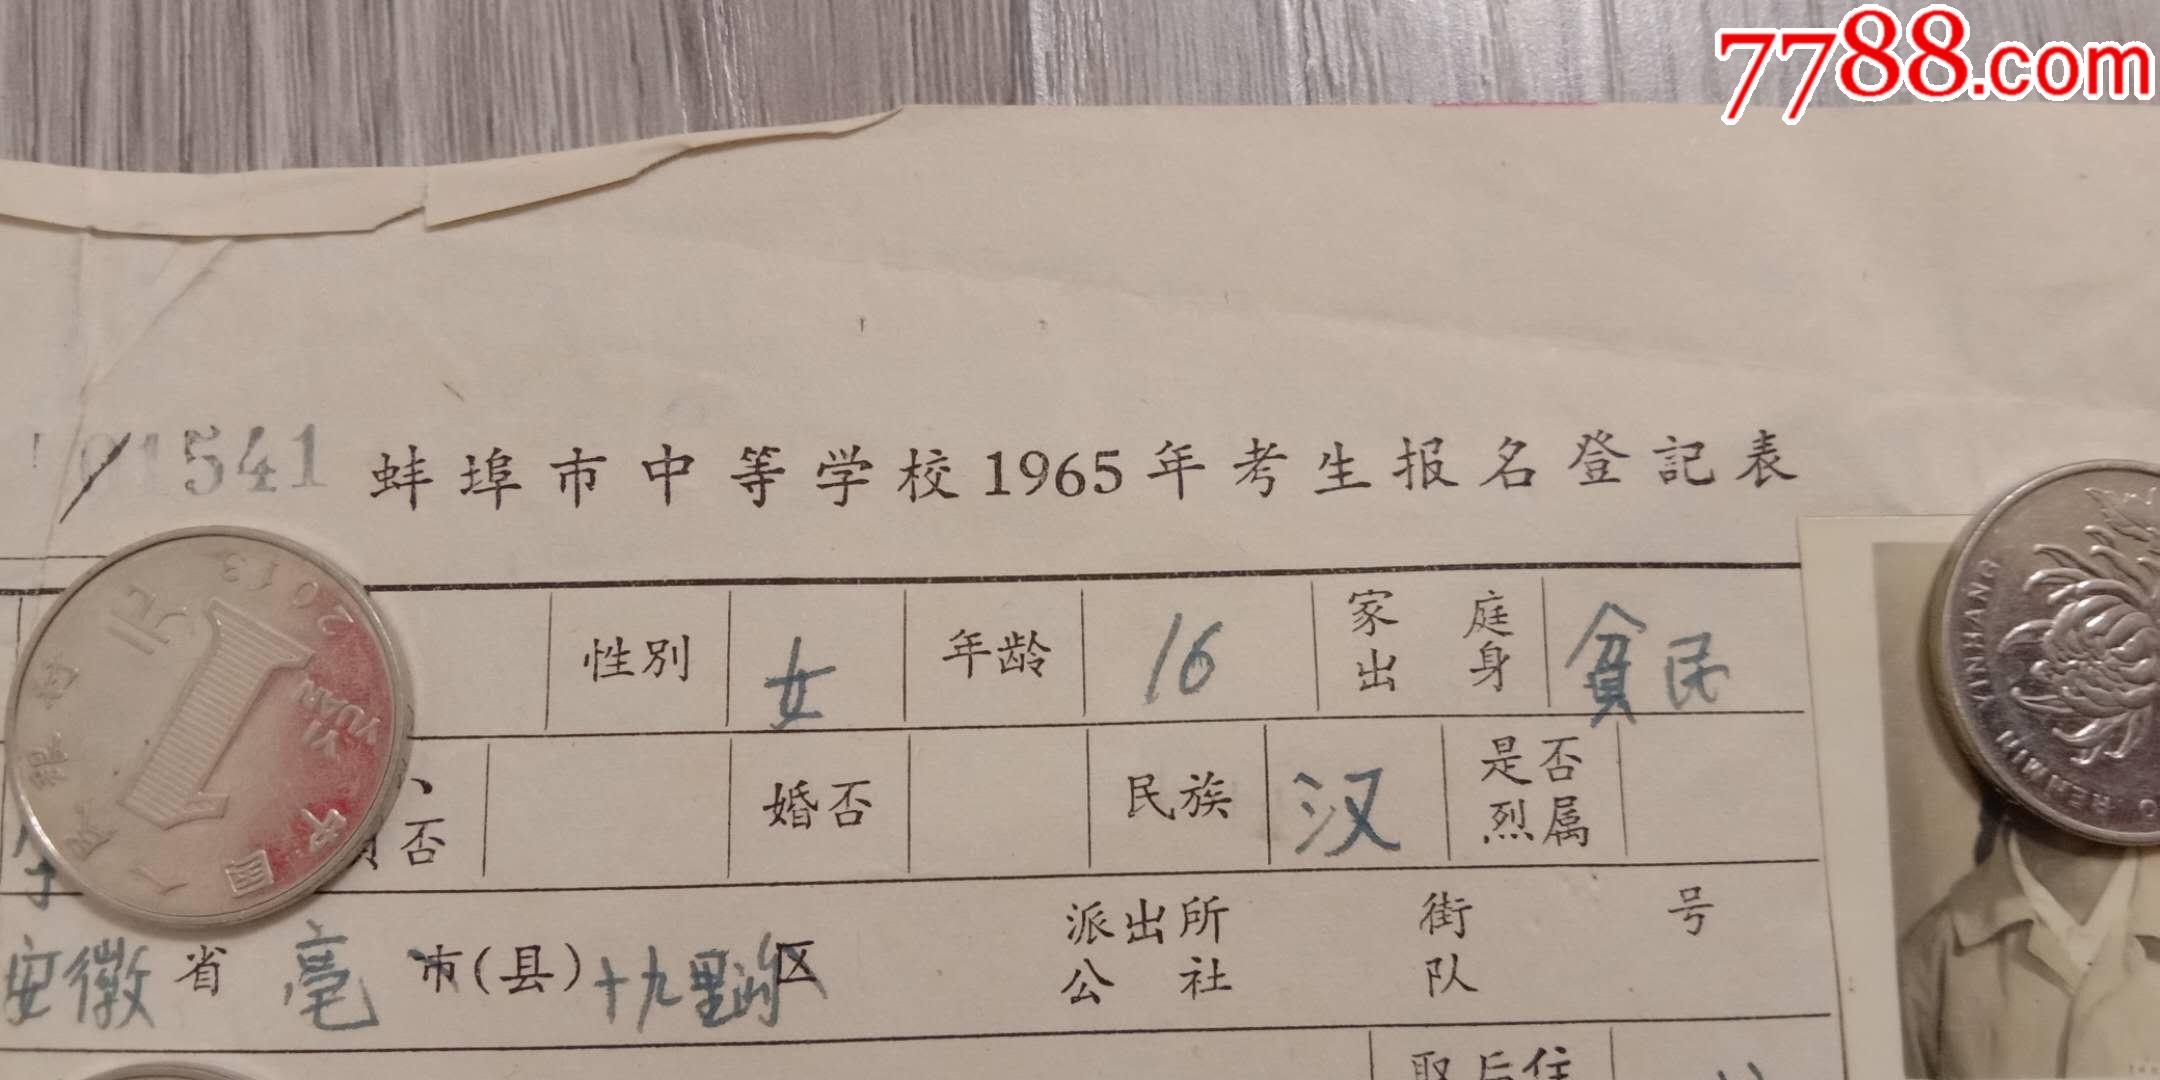 7788.com
01541 蚌埠市中等学校1965年考生报名登記表
性別 女 年龄 16 家庭出身 貧民
否 婚否 民族 汉 是否烈属
安徽 省 亳 市(县) 十九里 区 派出所 公社 街 队 号
1 YUAN 2013
YINHANG RENMIN